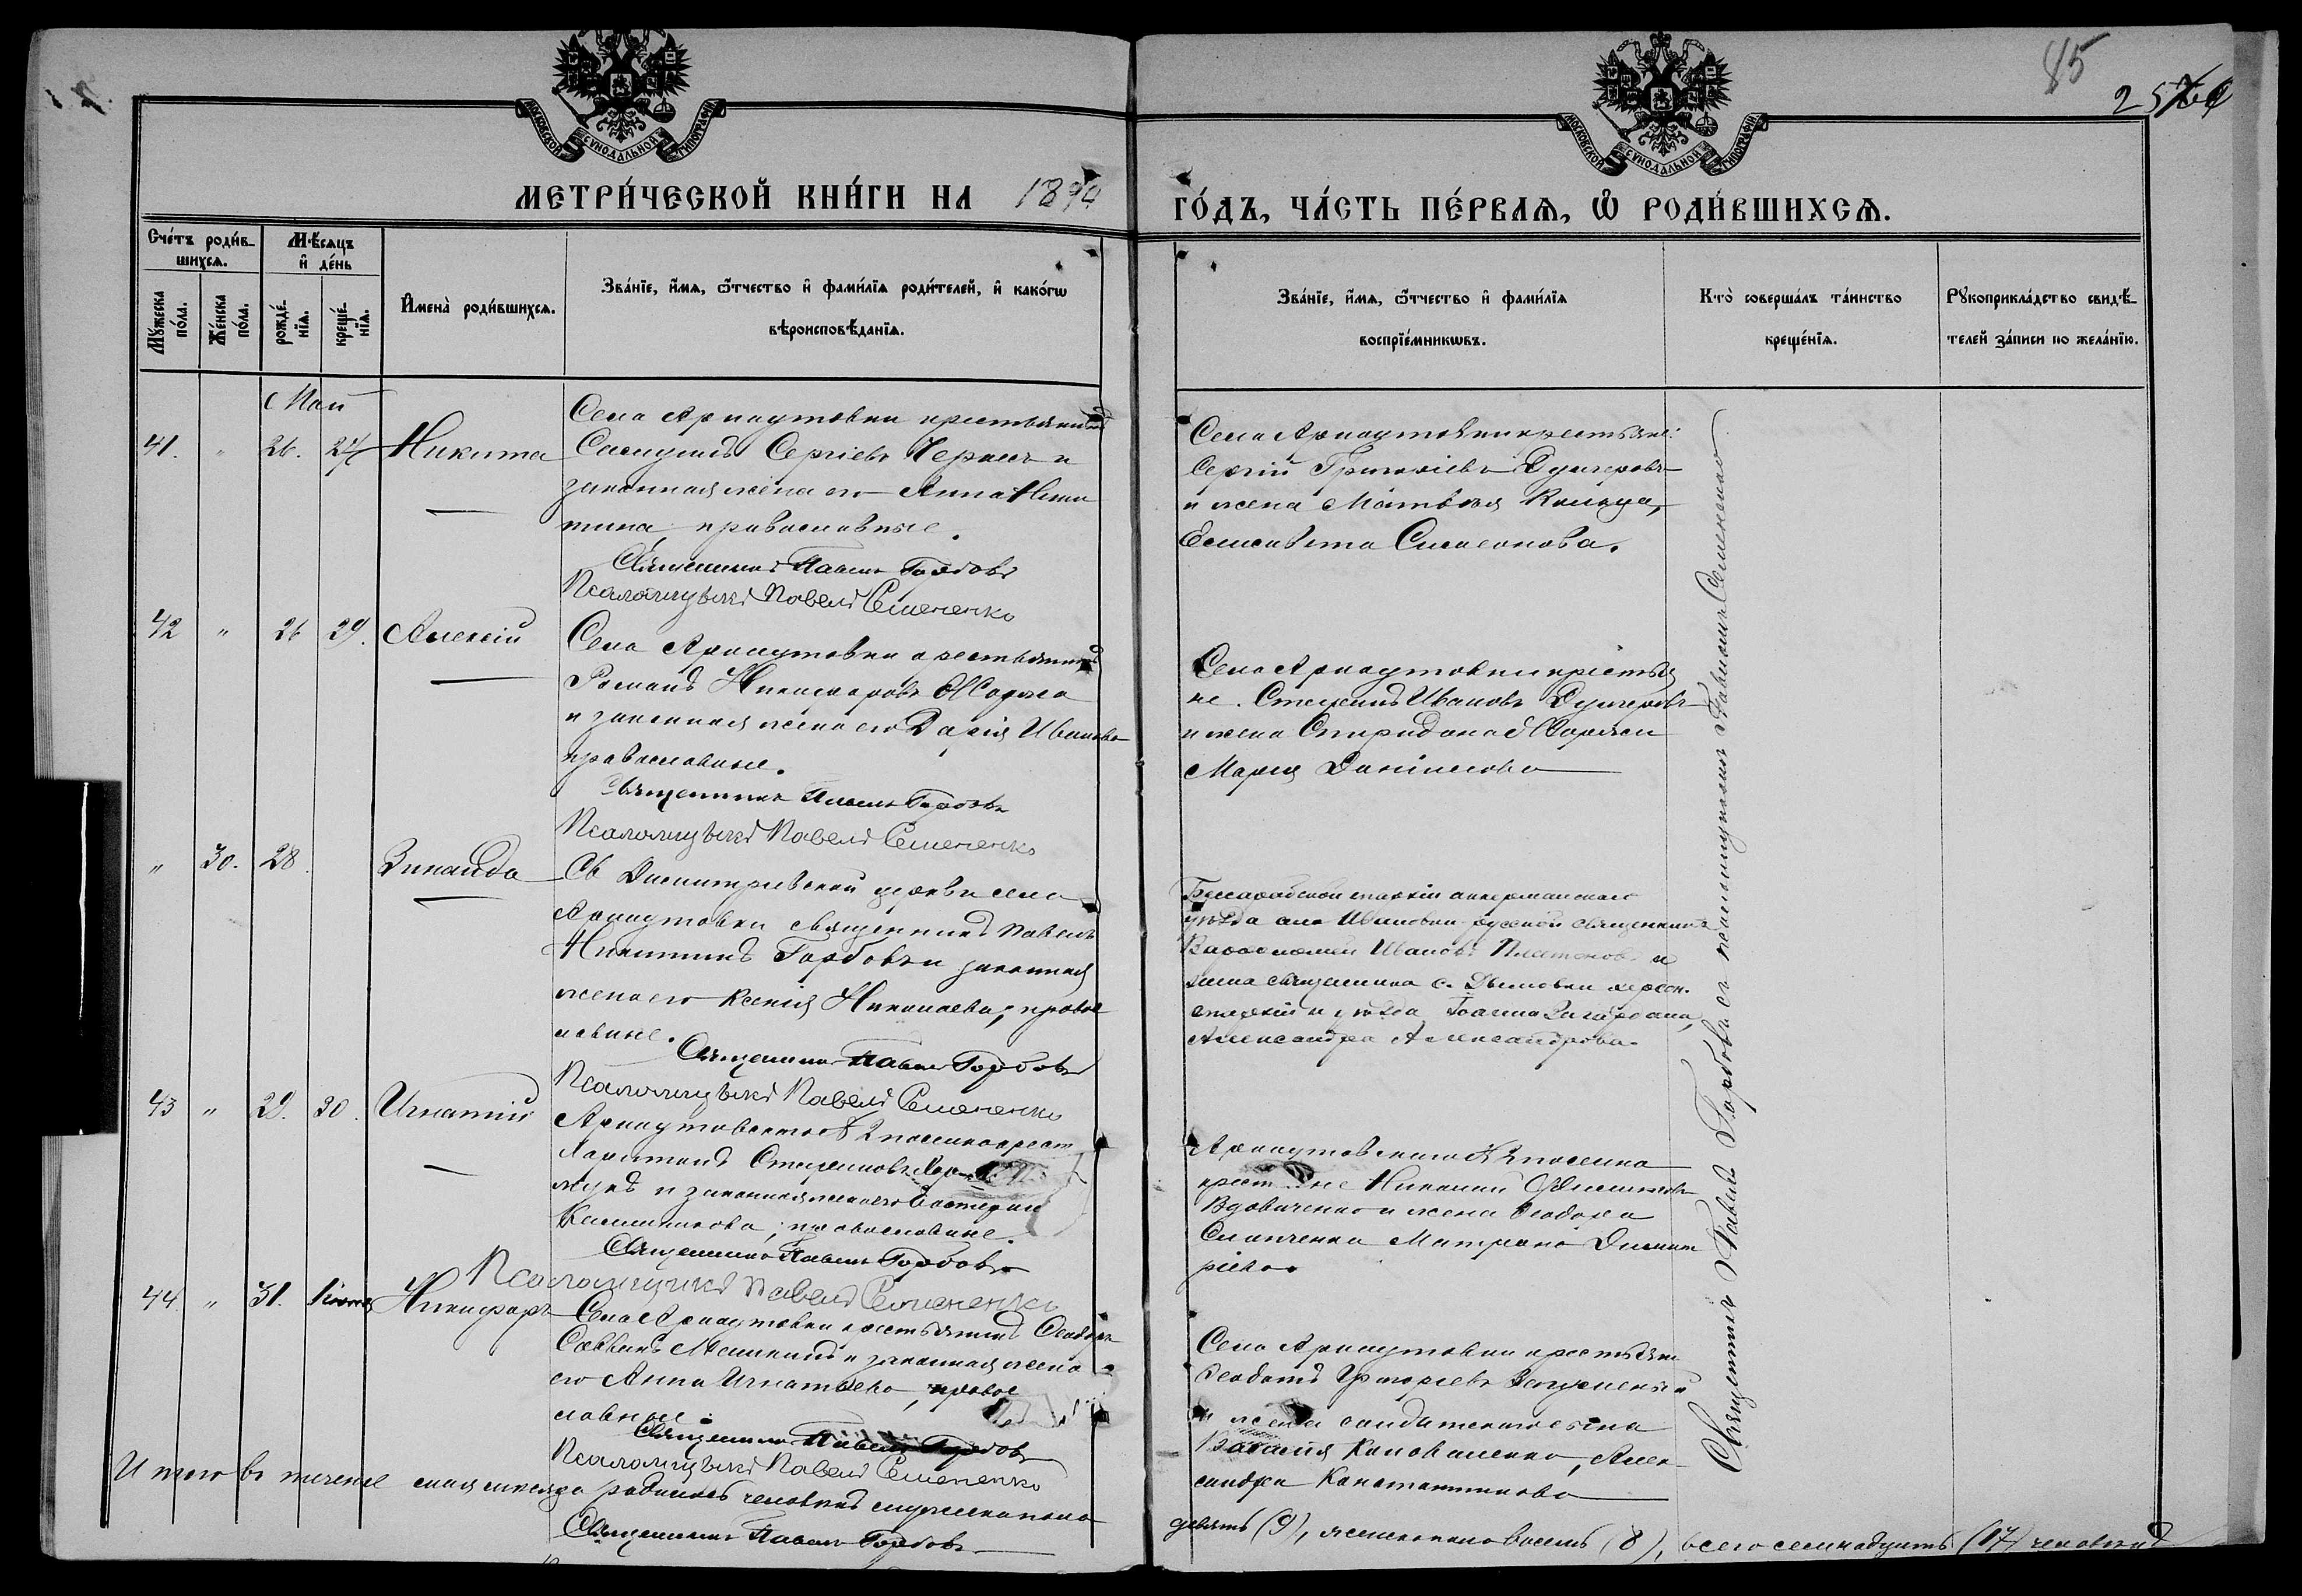 85
25
МОСКОВСКОЙ СУНОДАЛЬНОЙ ТИПОГРАФИИ
МОСКОВСКОЙ СУНОДАЛЬНОЙ ТИПОГРАФИИ
МЕТРИ́ЧЕСКОЙ КНИ́ГИ НА 1894
ГО́ДЪ, ЧА́СТЬ ПЕ́РВАѦ, Ѽ РОДИ́ВШИХСѦ.
Сче́тъ роди́в-
шихсѧ.
Мѣ́сѧцъ
и҆ де́нь
Мꙋ́жеска
по́ла.
Же́нска
по́ла.
рожде́-
нїѧ.
креще́-
нїѧ.
И҆мена̀ роди́вшихсѧ.
Зва́нїе, и҆́мѧ, ѻ҆́тчество и҆ фами́лїѧ роди́телей, и҆ како́гѡ
вѣроисповѣ́данїѧ.
Зва́нїе, и҆́мѧ, ѻ҆́тчество и҆ фами́лїѧ
воспрїе́мникѡвъ.
Кто̀ соверша́лъ та́инство
креще́нїѧ.
Рꙋкоприкла́дство свидѣ́-
телей за́писи по жела́нїю.
Май
41. " 26. 27 Никита
Села Арнаутовки крестьянинъ
Сергіевъ Чернец и
законная жена его Анна Ники
тина, православные.
Священникъ Павелъ Горбовъ
Псаломщикъ Павелъ Семененко
Села Арнаутовки крестьяне:
Сергій Григоріевъ Дунгеровъ
и жена Матвѣя
Елисавета Симеонова.
42 " 26 29. Алексій
Села Арнаутовки крестьянинъ
Романъ Никифоровъ
и законная жена его Дарія Иванова
православные.
Священникъ Павелъ Горбовъ
Псаломщикъ Павелъ Семененко
Села Арнаутовки крестья
не. Стефанъ Ивановъ Дунгеровъ
и жена Спиридона
Марія Даніилова
" 30. 28. Зинаида
Св Димитріевской церкви села
Арнаутовки священникъ Павелъ
Никитинъ Горбовъ и законная
жена его Ксенія Николаева, право
славные.
Священникъ Павелъ Горбовъ
Псаломщикъ Павелъ Семененко
Бессарабской епархіи аккерманскаго
уѣзда села Ивановки-русской священникъ
Варѳоломей Ивановъ Платоновъ и
жена священника с. Дымовки херсон.
епархіи и уѣзда Іоанна
Александра Александрова.
43 " 29. 30. Игнатій
Арнаутовскаго поселка крест
Харитонъ Стефановъ
и законная жена его
Калинникова; православные.
Священникъ Павелъ Горбовъ
Псаломщикъ Павелъ Семененко
Арнаутовскаго поселка
крестьяне Николай
Вдовиченко и жена Ѳеодора
Матрона Димит
ріева
44. " 31. Никифоръ
Села Арнаутовки крестьянинъ Ѳеодоръ
Саввинъ и законная жена
его Анна Игнатьева, право
славные.
Священникъ Павелъ Горбовъ
Псаломщикъ Павелъ Семененко
Села Арнаутовки крестьяне
Григорьевъ
и жена солдатскаго сына
Василія Коноваленко, Алек
сандра Константинова
Священникъ Павелъ Горбовъ съ псаломщикомъ Павломъ Семененко
Итого въ теченіе мая мѣсяца родилось человѣкъ мужеска пола
девять (9), женска пола восемь (8), всего семнадцать (17) человѣкъ
Священникъ Павелъ Горбовъ